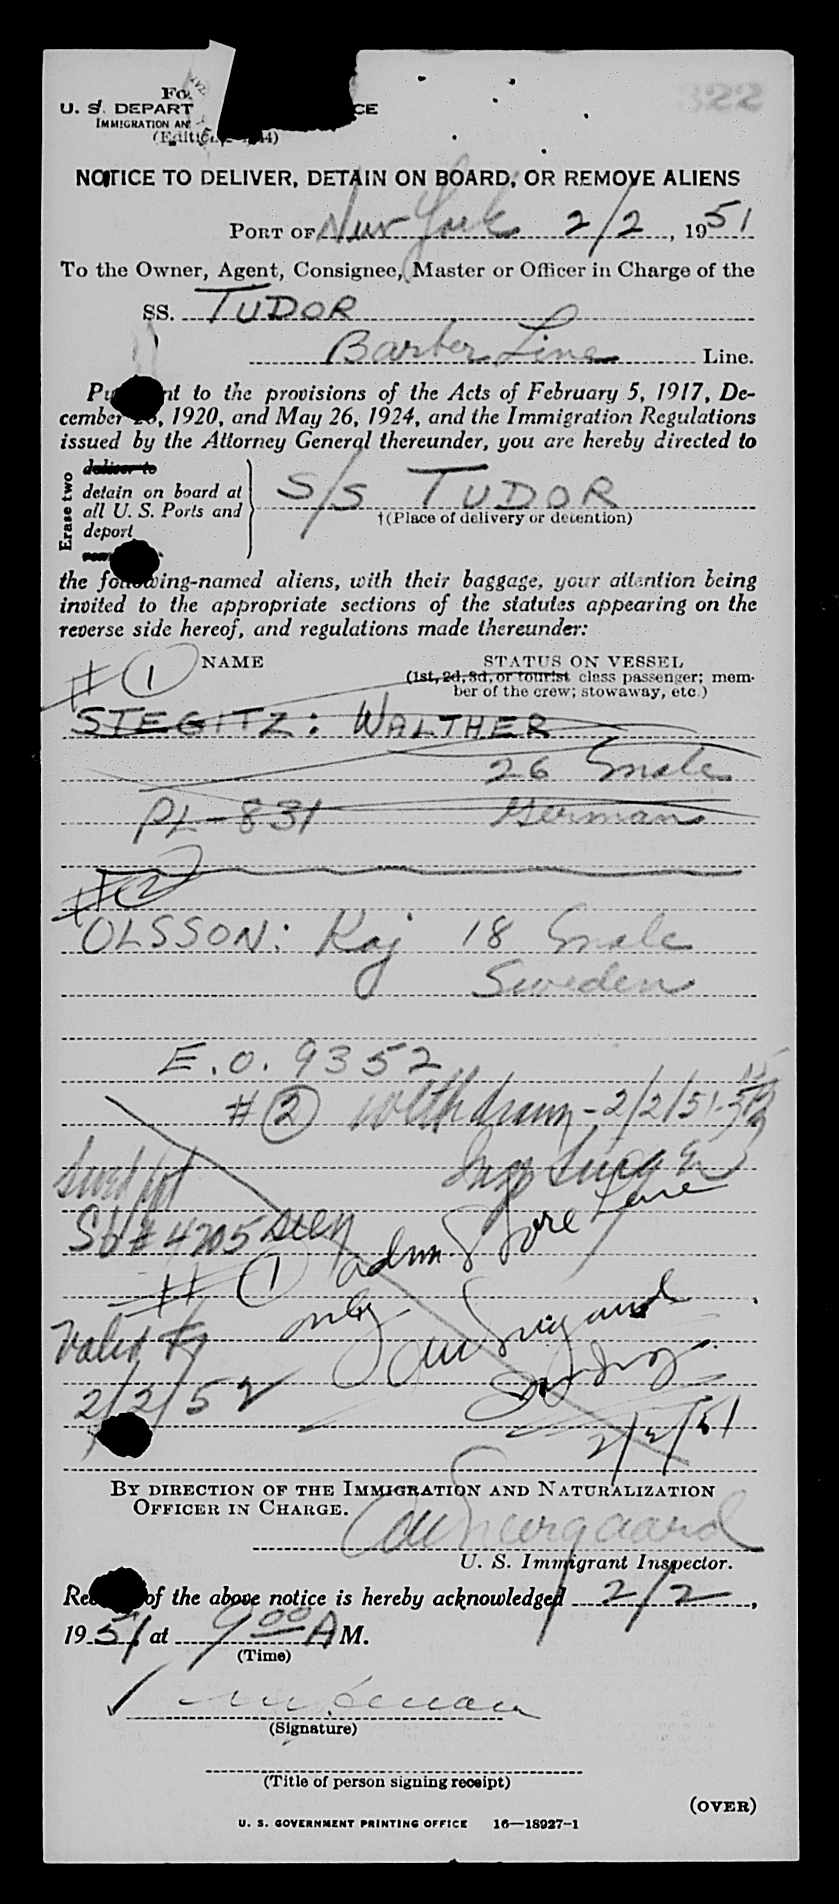 322
U. S. DEPART CE
IMMIGRATION AN
NOTICE TO DELIVER, DETAIN ON BOARD, OR REMOVE ALIENS
PORT OF New York 2/2, 1951
To the Owner, Agent, Consignee, Master or Officer in Charge of the
SS. TUDOR
Barber Line Line.
to the provisions of the Acts of February 5, 1917, De-
cember 1920, and May 26, 1924, and the Immigration Regulations
issued by the Attorney General thereunder, you are hereby directed to
Erase two
deliver to
detain on board at
all U. S. Ports and
deport
S/S TUDOR
†(Place of delivery or detention)
the following-named aliens, with their baggage, your attention being
invited to the appropriate sections of the statutes appearing on the
reverse side hereof, and regulations made thereunder:
# 1 NAME STATUS ON VESSEL
(1st, 2d, 3d, or tourist class passenger; mem-
ber of the crew; stowaway, etc.)
STEGITZ: WALTHER
26 male
PL-831 German
#2
OLSSON: Kaj 18 male
Sweden
E.O. 9352
#2 Withdrawn - 2/2/51
Sb# 4205 seen
# 1 adm.
only
Valid to
2/2/52
2/2/51
BY DIRECTION OF THE IMMIGRATION AND NATURALIZATION
OFFICER IN CHARGE.
U. S. Immigrant Inspector.
of the above notice is hereby acknowledged 2/2,
1951, at 9 00 A M.
(Time)
(Signature)
(Title of person signing receipt)
(OVER)
U. S. GOVERNMENT PRINTING OFFICE 16—18927-1